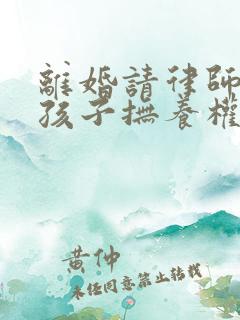 離婚請律師
孩子撫養權
黃仲
未经同意禁止转载